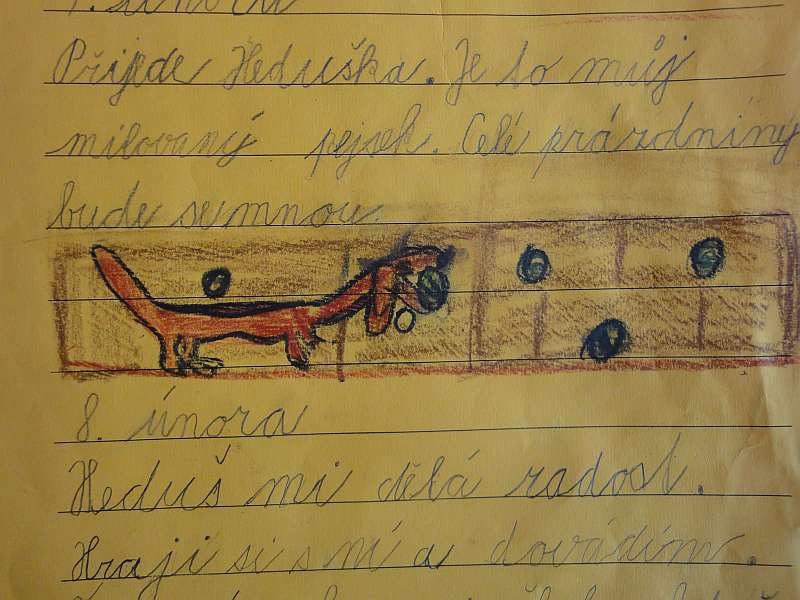 února
Přijede Heduška. Je to můj
milovaný pejsek. Celé prázdniny
bude semnou.
8. února
Heduš mi dělá radost.
Hraji si s ní a dovádím.